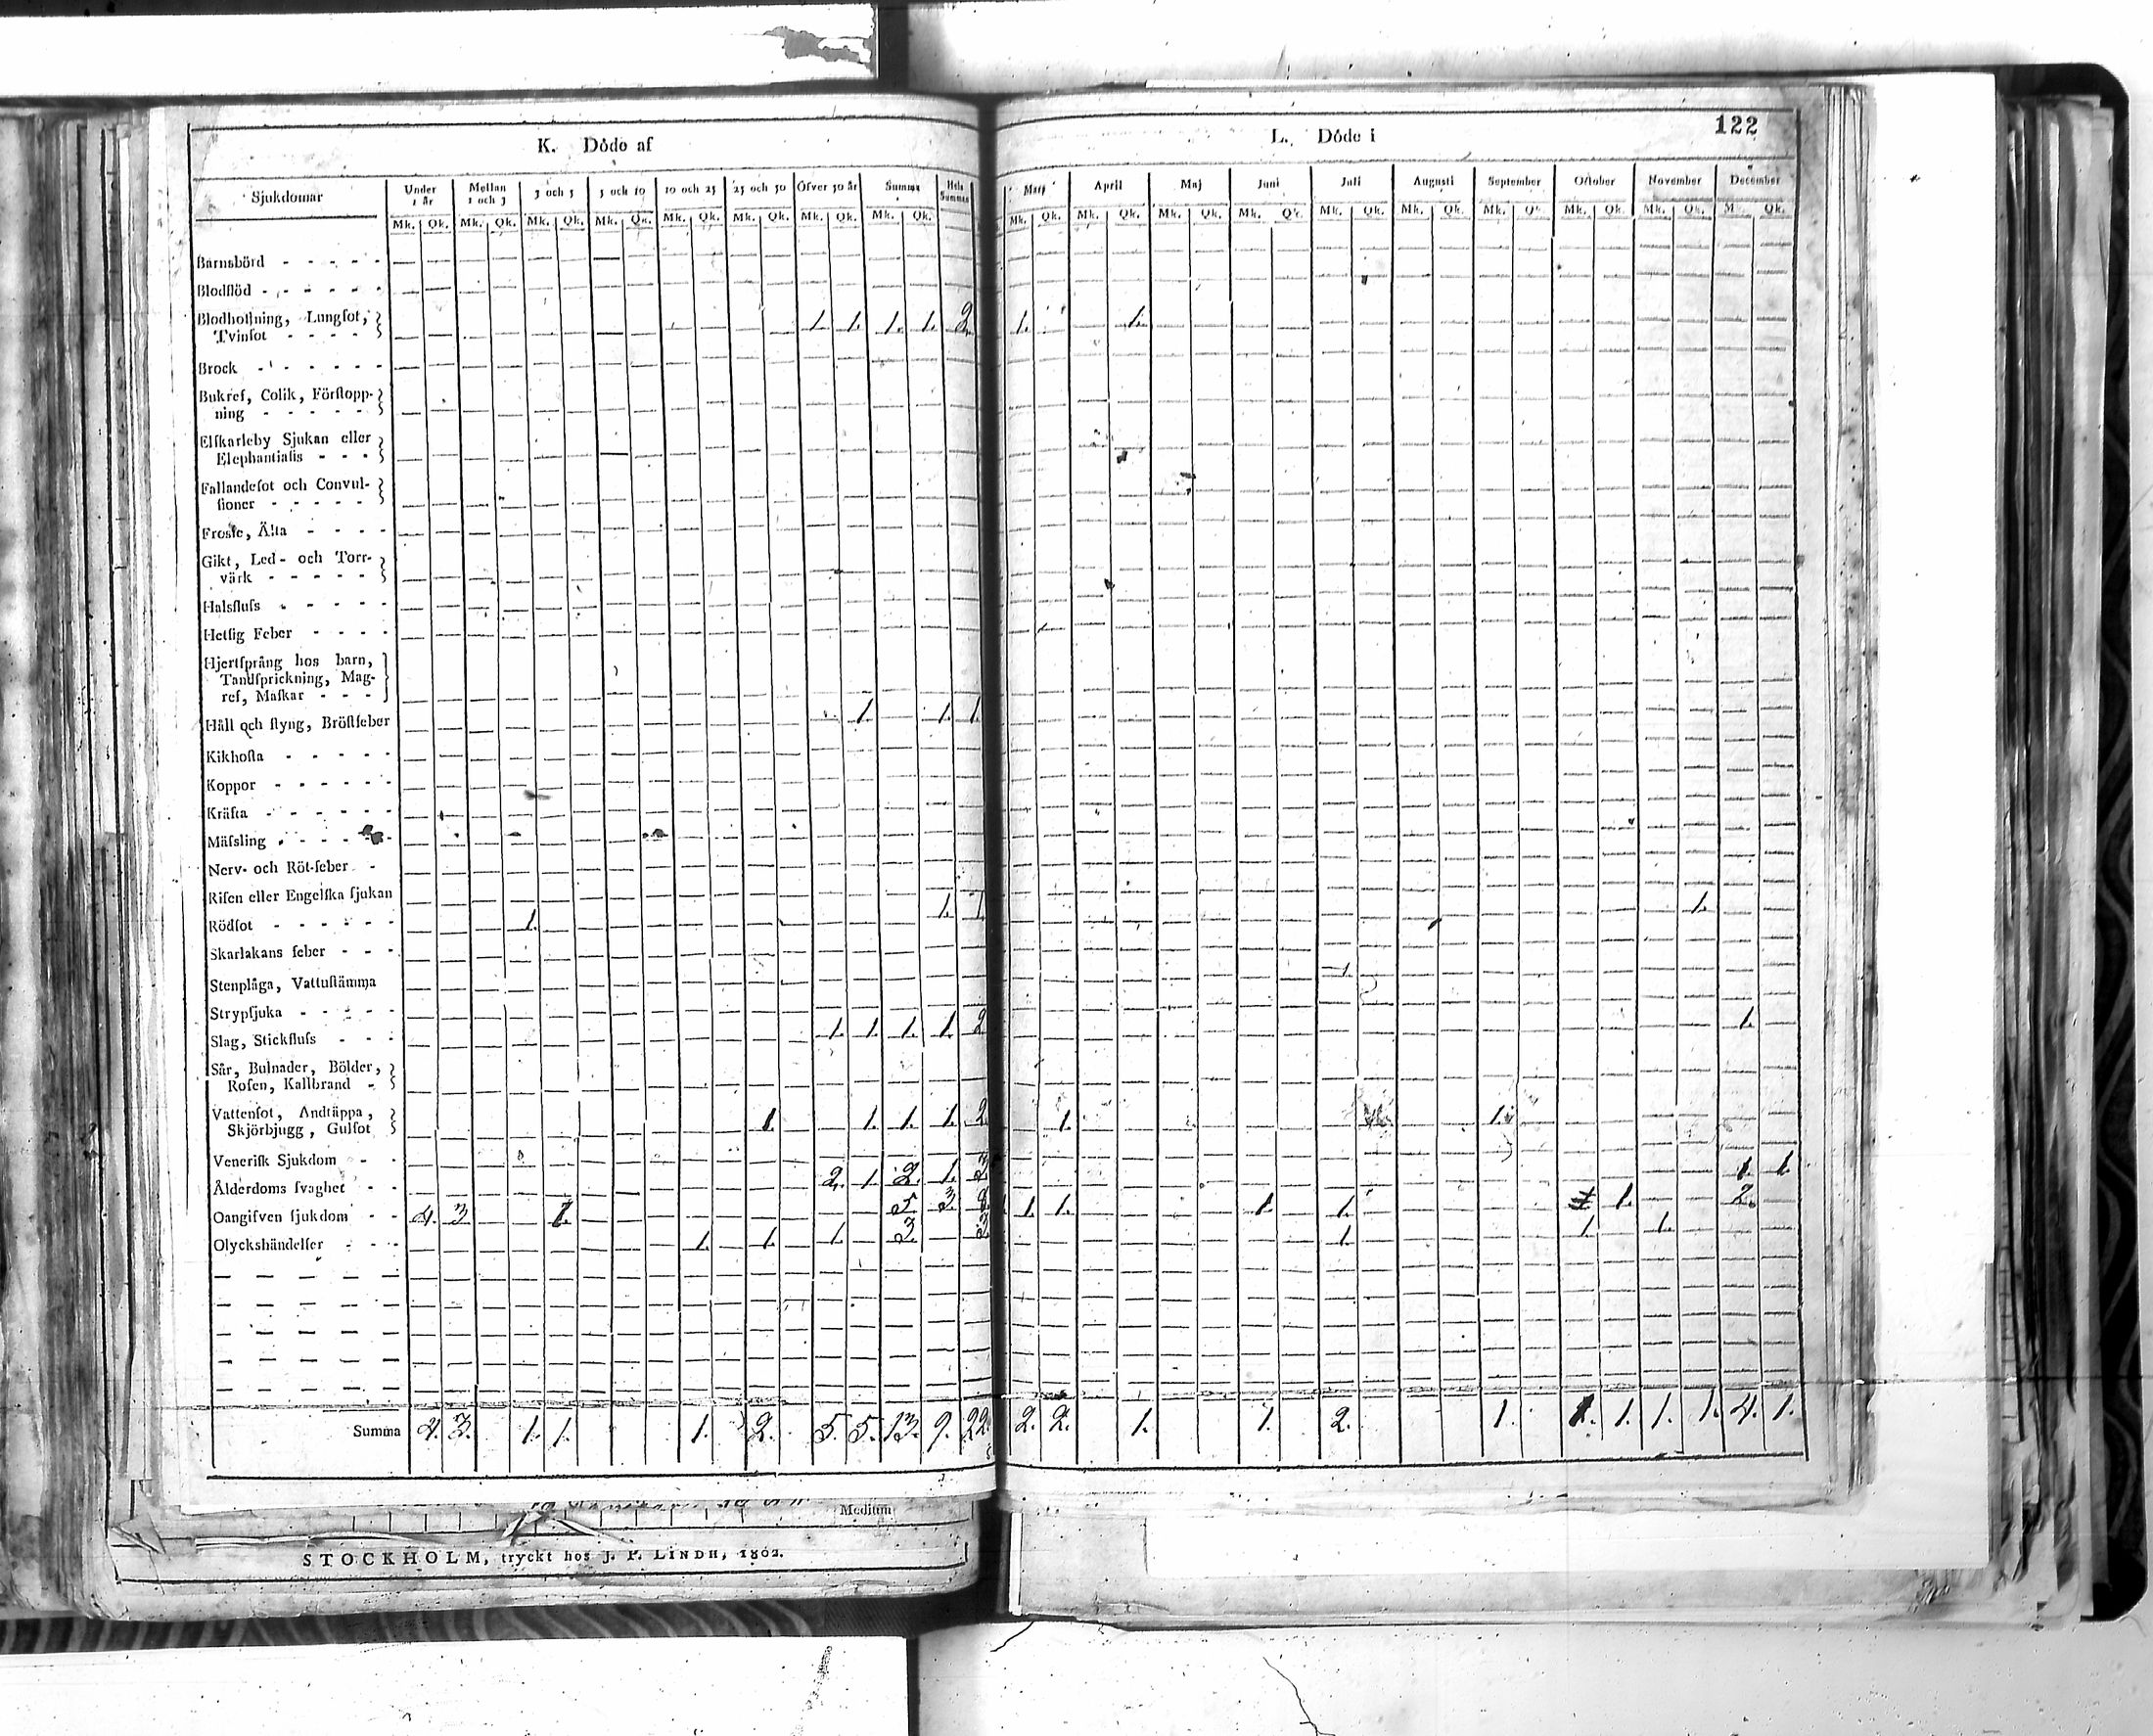 K. Döde af
L. Döde i
122
Sjukdomar Under 1 år Mellan 1 och 3 3 och 5 5 och 10 10 och 25 25 och 50 Öfver 50 år Summa Hela Summan
Mars April Maj Juni Juli Augusti September October November December
Mk. Qk. Mk. Qk. Mk. Qk. Mk. Qk. Mk. Qk. Mk. Qk. Mk. Qk. Mk. Qk.
Mk. Qk. Mk. Qk. Mk. Qk. Mk. Qk. Mk. Qk. Mk. Qk. Mk. Qk. Mk. Qk. Mk. Qk. Mk. Qk.
Barnsbörd - - - - -
Blodflöd - - - - - -
Blodhostning, Lungsot,
Tvinsot - - - - 1. 1. 1. 1. 2. 1. 1.
Brock - - - - - -
Bukref, Colik, Förstopp-
ning - - - - -
Elfkarleby Sjukan eller
Elephantiasis - - -
Fallandesot och Convul-
sioner - - - - -
Frossa, Älta - - - -
Gikt, Led- och Torr-
värk - - - - -
Halsfluss - - - - -
Hetsig Feber - - - -
Hjertsprång hos barn,
Tandsprickning, Mag-
ref, Maskar - - -
Håll och styng, Bröstfeber 1. 1. 1.
Kikhosta - - - - -
Koppor - - - - - -
Kräfta - - - - - -
Mässling - - - - -
Nerv- och Röt-feber -
Risen eller Engelska sjukan
Rödsot - - - - - - 1. 1. 1. 1.
Skarlakans feber - - -
Stenplåga, Vattustämma
Strypsjuka - - - - -
Slag, Stickfluss - - - 1. 1. 1. 1. 2. 1.
Sår, Bulnader, Bölder,
Rosen, Kallbrand -
Vattensot, Andtäppa,
Skjörbjugg, Gulsot 1. 1. 1. 1. 2. 1. 1.
Venerisk Sjukdom - -
Ålderdoms svaghet - - 2. 1. 2. 1. 3. 1. 1.
Oangifven sjukdom - - 4. 3. 1. 5. 3. 8. 1. 1. 1. 1. 1. 2.
Olyckshändelser - - - 1. 1. 1. 3. 3. 1. 1. 1.
Summa 4. 3. 1. 1. 1. 2. 5. 5. 13. 9. 22. 2. 2. 1. 1. 2. 1. 1. 1. 1. 1. 4. 1.
Medium
STOCKHOLM, tryckt hos J. P. LINDH, 1802.